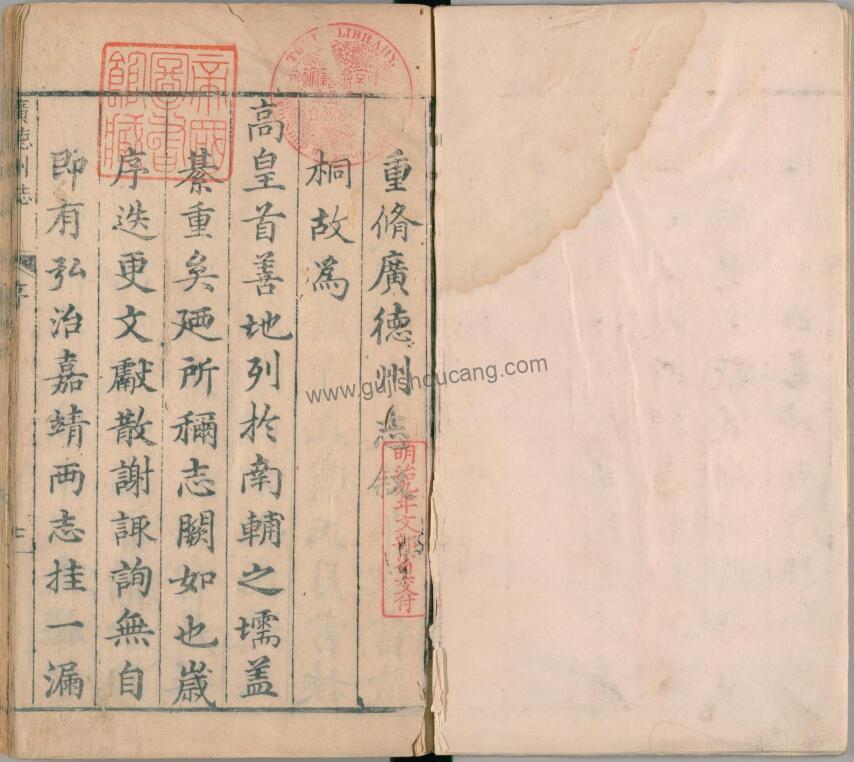 重脩廣德州志敘
桐故爲
高皇首善地列於南輔之壖盖
綦重矣廼所稱志闕如也嵗
序迭更文獻散謝諏詢無自
即有弘治嘉靖兩志挂一漏
廣德州志
序
帝國
圖書
館藏
LIBRARY
明治九年文部省交付
www.gujishoucang.com